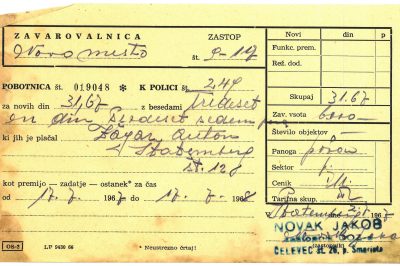 ZAVAROVALNICA ZASTOP
Novo mesto št. 9-117
POBOTNICA št. 019048 * K POLICI št. 249
za novih din 31,67 z besedami Trideset
en din šezdeset sedem par
ki jih je plačal Žagar Anton
št. 128
kot premijo — zadatje — ostanek* za čas
od 17. 7. 1967 do 17. 7. 1968
OS-2 LP 9430 66 * Neustrezno črtaj!
Novi din p
Funkc. prem.
Ref. dod.
Skupaj 31.67
Zav. vsota
Število objektov
Panoga
Sektor
Cenik
Tarifna skup.
1967
NOVAK JAKOB
ČELEVEC št. 20, p. Šmarjeta